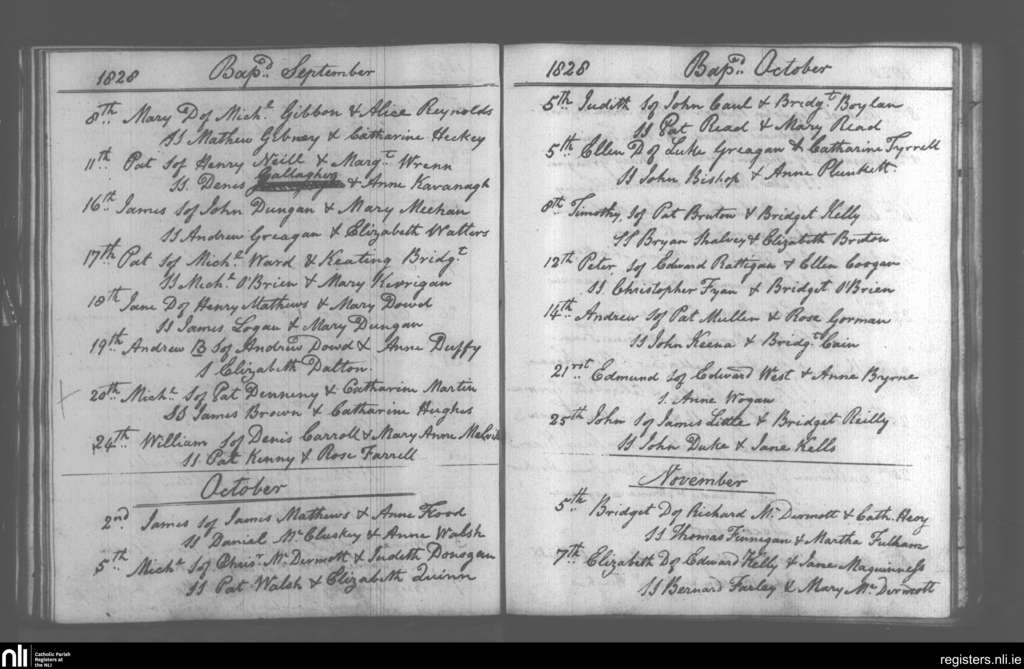 1828 Bapd. September
8th Mary D of Michl. Gibbon & Alice Reynolds
SS Mathew Gibney & Catharine Hickey
11th Pat Sof Henry Neill & Margt. Wrenn
SS. Denis Gallagher & Anne Kavanagh
16th James Sof John Dungan & Mary Meehan
SS Andrew Greagan & Elizabeth Walters
17th Pat Sof Michl. Ward & Keating Bridgt.
SS Michl. O'Brien & Mary Kerrigan
18th Jane D of Henry Mathews & Mary Dowd
SS James Logan & Mary Dungan
19th Andrew B Sof Andrew Dowd & Anne Duffy
S Elizabeth Dalton
20th Michl. Sof Pat Denneny & Catharin Martin
SS James Brown & Catharine Hughes
24th William Sof Denis Carroll & Mary Anne
SS Pat Kenny & Rose Farrell
October
2nd James Sof James Mathews & Anne Flood
SS Daniel Mc Cluskey & Anne Walsh
5th Michl. Sof Christ. Mc Dermott & Judeth Donegan
SS Pat Walsh & Elizabeth Quinn
1828 Bapd. October
5th Judith Sof John Caul & Bridgt. Boylan
SS Pat Read & Mary Read
5th Ellen D of Luke Greagan & Catharine Tyrrell
SS John Bishop & Anne Plunkett
8th Timothy Sof Pat Bruton & Bridget Kelly
SS Bryan Shalvey & Elizabeth Bruton
12th Peter Sof Edward Rattigan & Ellen Coogan
SS Christopher Fyan & Bridget O'Brien
14th Andrew Sof Pat Mullen & Rose Gorman
SS John Keena & Bridgt. Cain
21rst Edmund Sof Edward West & Anne Byrne
S. Anne Wogan
25th John Sof James Little & Bridget Reilly
SS John Duke & Jane Kells
November
5th Bridget D of Richard Mc Dermott & Cath. Heavy
SS Thomas Finnegan & Martha Fulham
7th Elizabeth D of Edward Kelly & Jane Maguinness
SS Bernard Farley & Mary Mc Dermott
nli Catholic Parish Registers at the NLI
registers.nli.ie